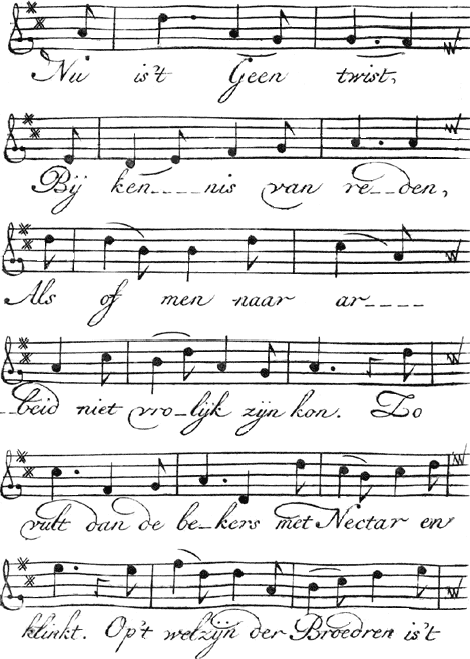 Nu is't Geen twist,
Bij ken____nis van re__den,
Als of men naar ar____
_beid niet vro_lijk zijn kon. Zo
vult dan de be_kers met Nectar en
klinkt. Op't welzijn der Broedren is't